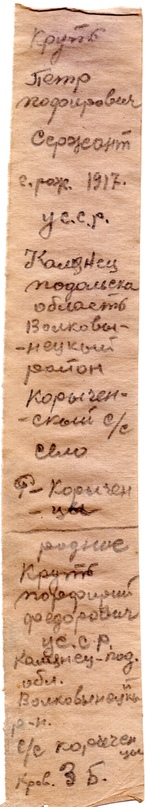 Круть
Петр
подфирович
Сержант
г. рож. 1917.
ус.с.р.
Каманец
подольска
область
Волковы-
-нецкый
район
Корычен-
-ский с/с
село
Ф- Корычен
- цы
родное
Круть
порфирий
федорович
ус.с.р.
Каманец-под.
обл.
Волковынецкий
р-н.
с/с коричен
цы
Кров. 3 Б.